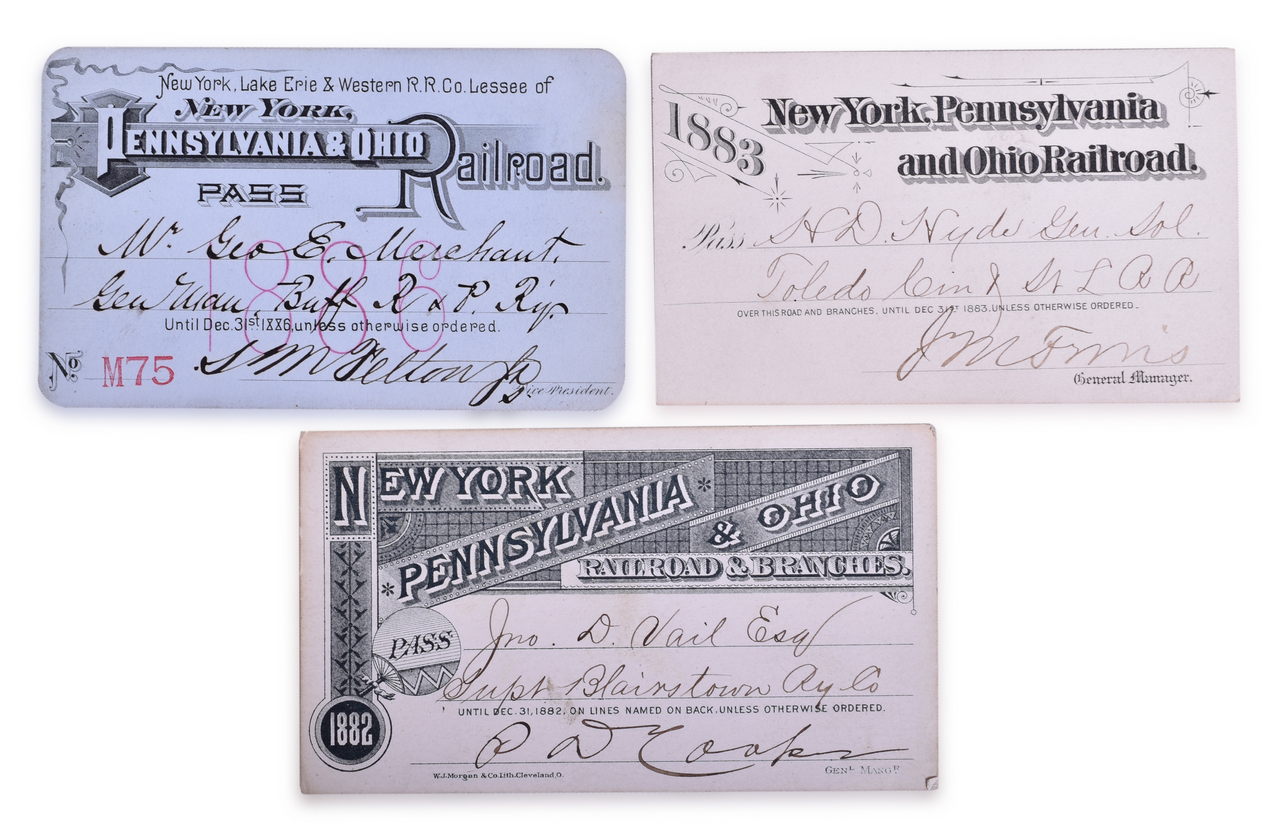 New York, Lake Erie & Western R.R. Co. Lessee of
New York,
Pennsylvania & Ohio Railroad.
PASS
1886
Mr. Geo E. Merchant.
Gen Man. Buff R & P. Ry.
Until Dec. 31st 1886, unless otherwise ordered.
No. M75 S M Felton Jr
Vice President.
1883
New York, Pennsylvania
and Ohio Railroad.
Pass H D. Hyde Gen. Sol.
Toledo Cin & St L R R
OVER THIS ROAD AND BRANCHES, UNTIL DEC 31ST 1883, UNLESS OTHERWISE ORDERED.
J M Ferris
General Manager.
NEW YORK
PENNSYLVANIA
& OHIO
RAILROAD & BRANCHES.
PASS Jno. D. Vail Esq
Supt Blairstown Ry Co
UNTIL DEC. 31, 1882, ON LINES NAMED ON BACK, UNLESS OTHERWISE ORDERED.
1882
P D Cooper
W.J. Morgan & Co. Lith. Cleveland, O.
GENL MANGR